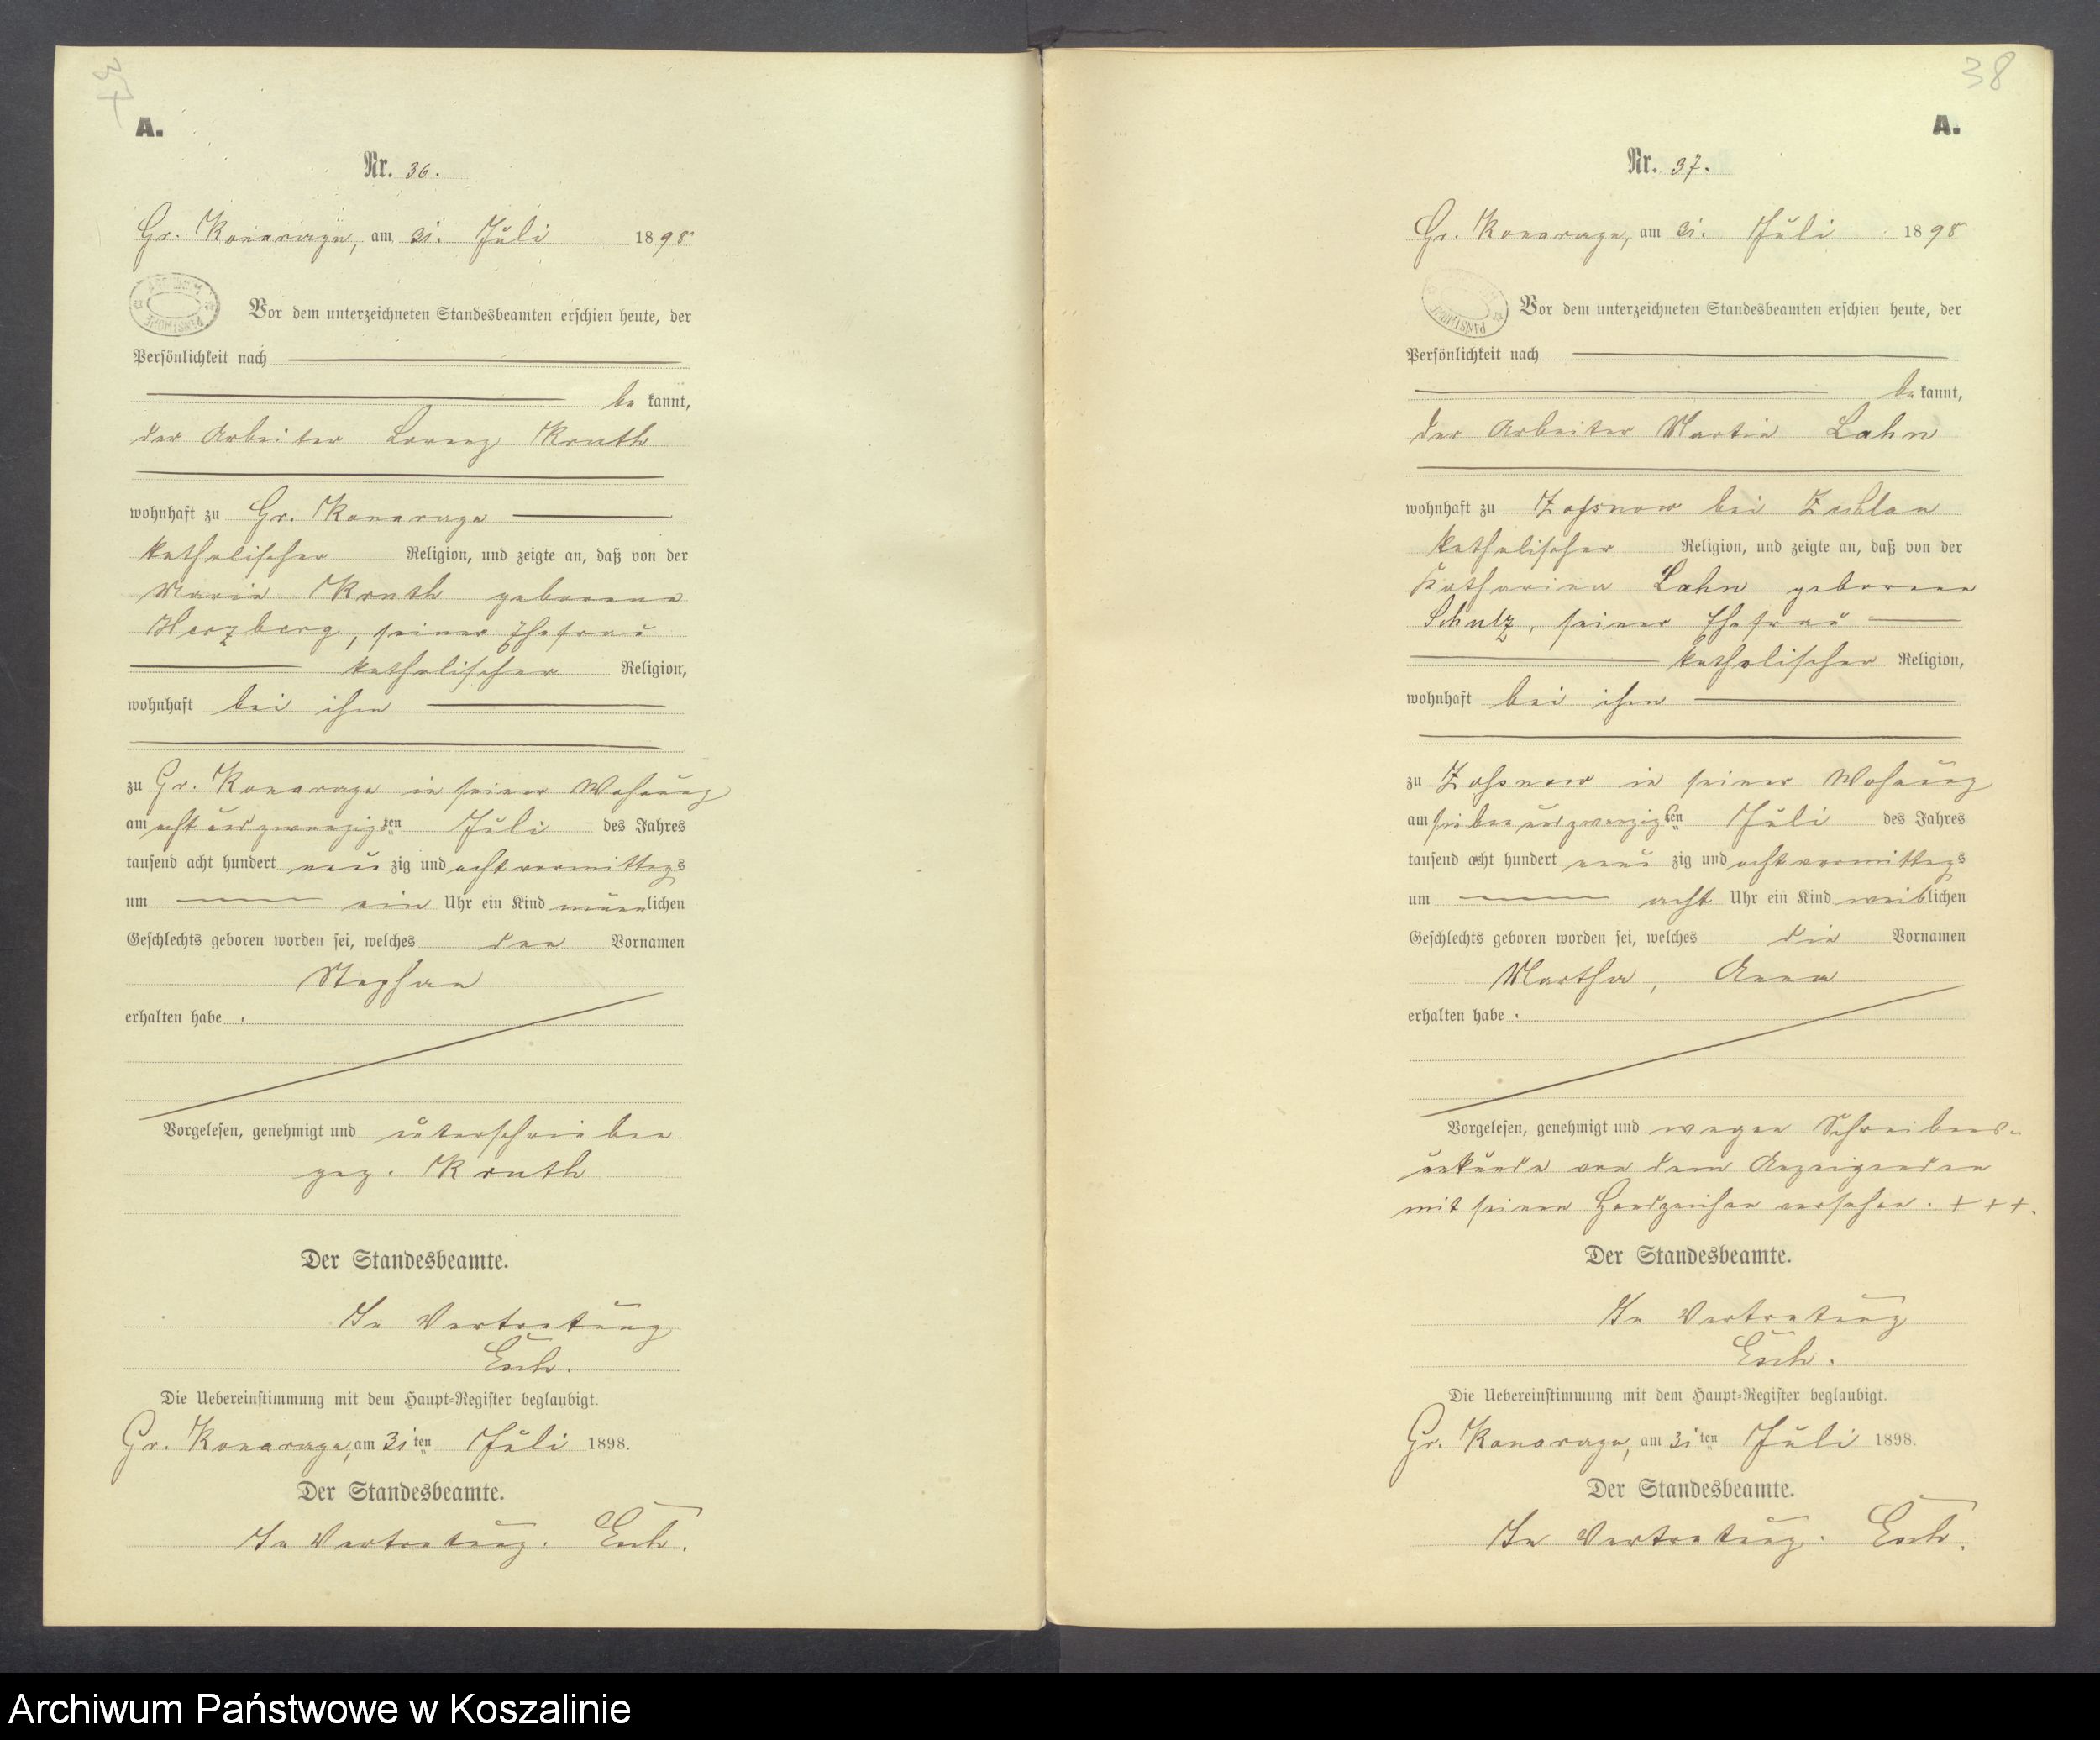 37
A.
Nr. 36.
Gr. Konarzyn, am 31. Juli 1898
Vor dem unterzeichneten Standesbeamten erschien heute, der
Persönlichkeit nach
be kannt,
der Arbeiter Lorenz Knuth
wohnhaft zu Gr. Konarzyn
katholischer Religion, und zeigte an, daß von der
Maria Knuth geborene
Herzberg, seiner Ehefrau
katholischer Religion,
wohnhaft bei ihm
zu Gr. Konarzyn in seiner Wohnung
am acht und zwanzigten Juli des Jahres
tausend acht hundert neun zig und acht vormittags
um ein Uhr ein Kind männlichen
Geschlechts geboren worden sei, welches den Vornamen
Stephan
erhalten habe.
Vorgelesen, genehmigt und unterschrieben
gez. Knuth
Der Standesbeamte.
In Vertretung
Esch.
Die Uebereinstimmung mit dem Haupt-Register beglaubigt.
Gr. Konarzyn, am 31ten Juli 1898.
Der Standesbeamte.
In Vertretung. Esch.
38
A.
Nr. 37.
Gr. Konarzyn, am 31. Juli 1898
Vor dem unterzeichneten Standesbeamten erschien heute, der
Persönlichkeit nach
be kannt,
der Arbeiter Martin Lahn
wohnhaft zu bei
katholischer Religion, und zeigte an, daß von der
Katharina Lahn geborene
Schulz, seiner Ehefrau
katholischer Religion,
wohnhaft bei ihm
zu in seiner Wohnung
am sieben und zwanzigten Juli des Jahres
tausend acht hundert neun zig und acht vormittags
um acht Uhr ein Kind weiblichen
Geschlechts geboren worden sei, welches die Vornamen
Martha, Anna
erhalten habe.
Vorgelesen, genehmigt und wegen Schreibens-
unkunde von dem Anzeigenden
mit seinem Handzeichen versehen. + + +.
Der Standesbeamte.
In Vertretung
Esch.
Die Uebereinstimmung mit dem Haupt-Register beglaubigt.
Gr. Konarzyn, am 31ten Juli 1898.
Der Standesbeamte.
In Vertretung. Esch.
Archiwum Państwowe w Koszalinie